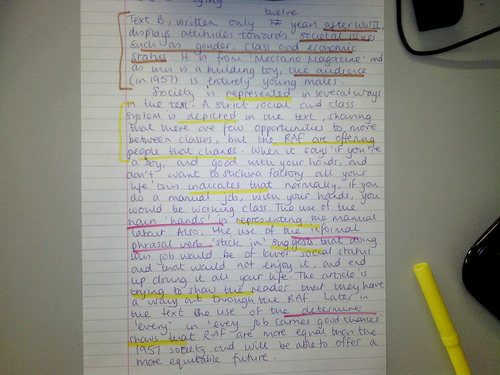 twelve
Text B, written only 12 years after WWII,
displays attitudes towards societal issues
such as gender, class and economic
status. It is from 'Meccano Magazine' and
as this is a building toy, the audience
(in 1957) is entirely young males.
Society is represented in several ways
in the text. A strict social and class
system is depicted in the text, showing
that there are few opportunities to move
between classes, but the RAF are offering
people that chance. When it says 'if you're
a boy, and good with your hands, and
don't want to stick in a factory all your
life' this indicates that normally, if you
do a manual job, with your hands, you
would be working class. The use of the
noun 'hands' is representing the manual
labour. Also, the use of the informal
phrasal verb 'stick in' suggests that doing
this job would be of lower social status
and that would not enjoy it, and end
up doing it all your life. The article is
trying to show the reader that they have
a way out through the RAF. Later in
the text the use of the determiner
'every' in 'every job carries good chances'
shows that RAF are more equal than the
1957 society and will be able to offer a
more equitable future.